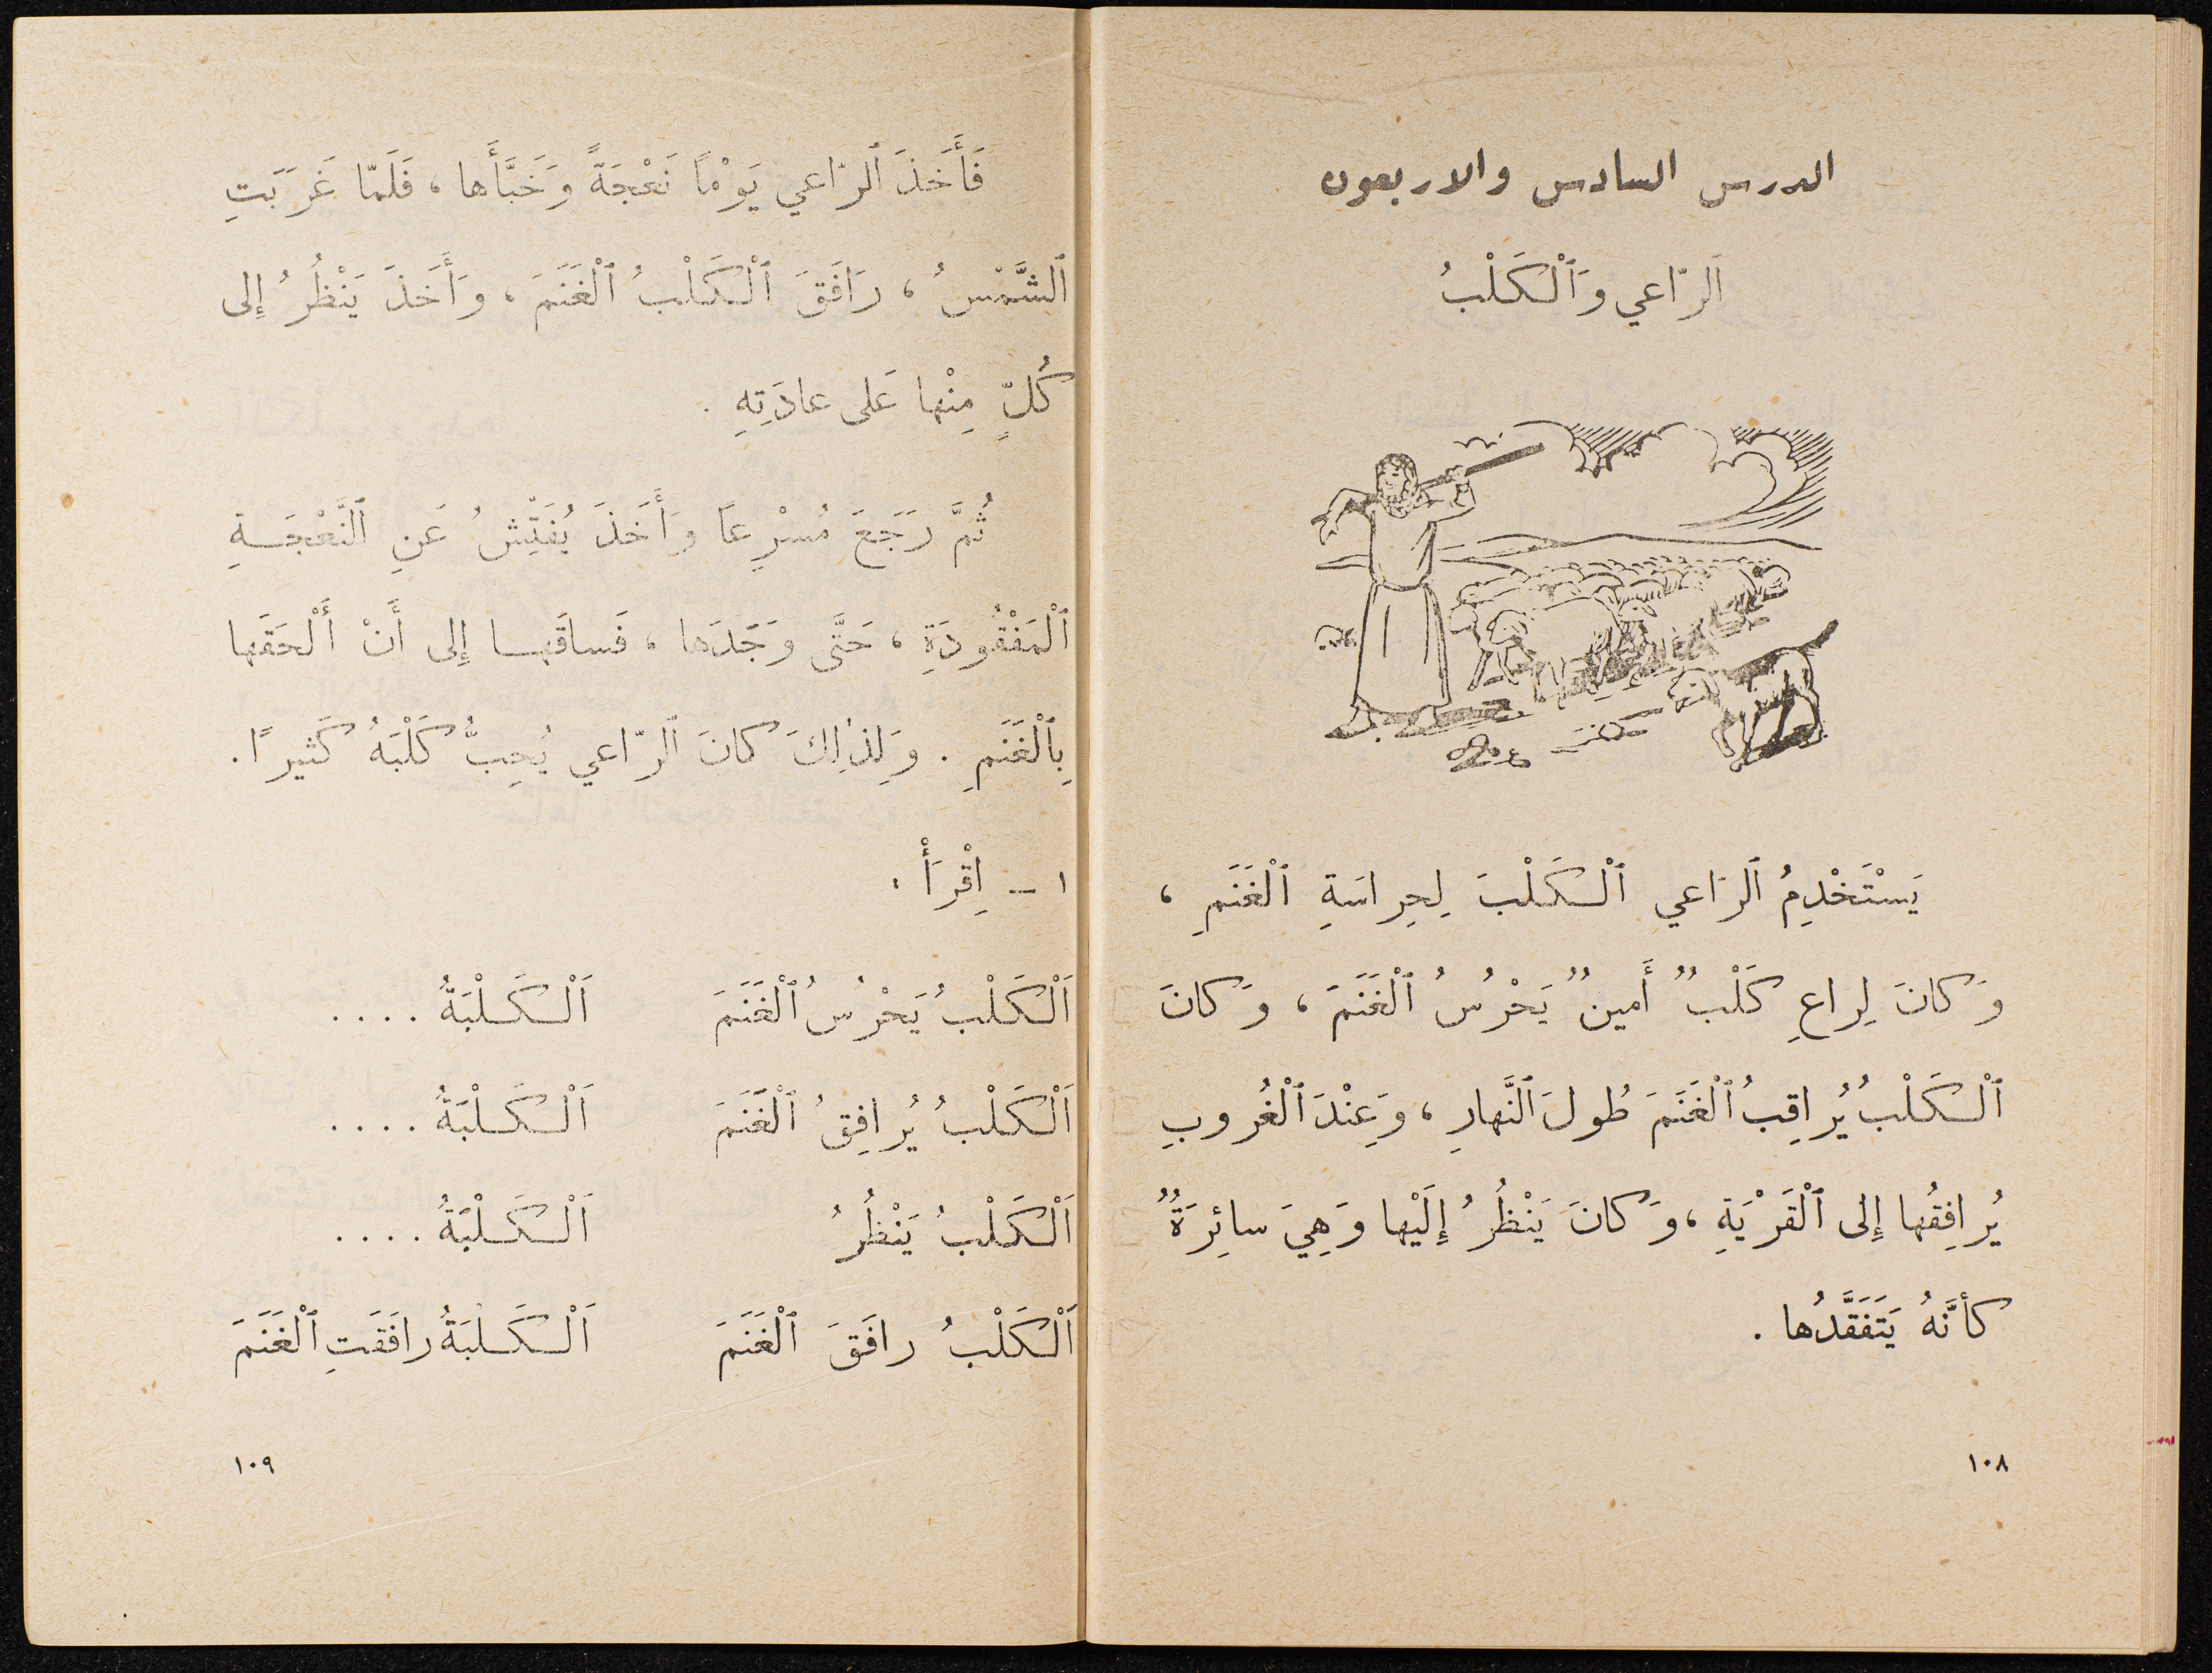 الدرس السادس والاربعون
اَلرّاعي وَٱلْكَلْبُ
يَسْتَخْدِمُ ٱلرّاعي ٱلْكَلْبَ لِحِراسَةِ ٱلْغَنَمِ ،
وَكانَ لِراعٍ كَلْبٌ أَمينٌ يَحْرُسُ ٱلْغَنَمَ ، وَكانَ
ٱلْكَلْبُ يُراقِبُ ٱلْغَنَمَ طُولَ ٱلنَّهارِ ، وَعِنْدَ ٱلْغُروبِ
يُرافِقُها إِلى ٱلْقَرْيَةِ ، وَكانَ يَنْظُرُ إِلَيْها وَهِيَ سائِرَةٌ
كأنَّهُ يَتَفَقَّدُها .
١٠٨
فَأَخَذَ ٱلرّاعي يَوْمًا نَعْجَةً وَخَبَّأَها ، فَلَمّا غَرَبَتِ
ٱلشَّمْسُ ، رَافَقَ ٱلْكَلْبُ ٱلْغَنَمَ ، وَأَخَذَ يَنْظُرُ إِلى
كُلٍّ مِنْها عَلى عادَتِهِ .
ثُمَّ رَجَعَ مُسْرِعاً وَأَخَذَ يُفَتِّشُ عَنِ ٱلنَّعْجَةِ
ٱلْمَفْقُودَةِ ، حَتَّى وَجَدَها ، فَساقَها إِلى أَنْ أَلْحَقَها
بِٱلْغَنَمِ . وَلِذٰلِكَ كانَ ٱلرّاعي يُحِبُّ كَلْبَهُ كَثيرًا .
١ – اِقْرَأْ :
اَلْكَلْبُ يَحْرُسُ ٱلْغَنَمَ اَلْكَلْبَةُ ....
اَلْكَلْبُ يُرافِقُ ٱلْغَنَمَ اَلْكَلْبَةُ ....
اَلْكَلْبُ يَنْظُرُ اَلْكَلْبَةُ ....
اَلْكَلْبُ رافَقَ ٱلْغَنَمَ اَلْكَلْبَةُ رافَقَتِ ٱلْغَنَمَ
١٠٩